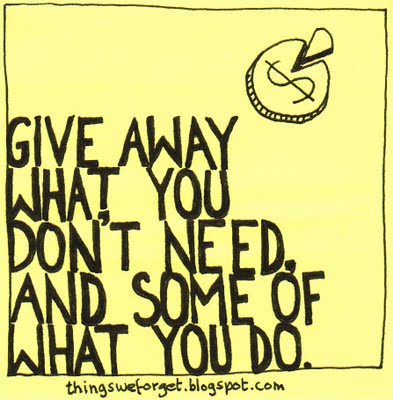 $
GIVE AWAY
WHAT YOU
DON'T NEED,
AND SOME OF
WHAT YOU DO.
thingsweforget.blogspot.com